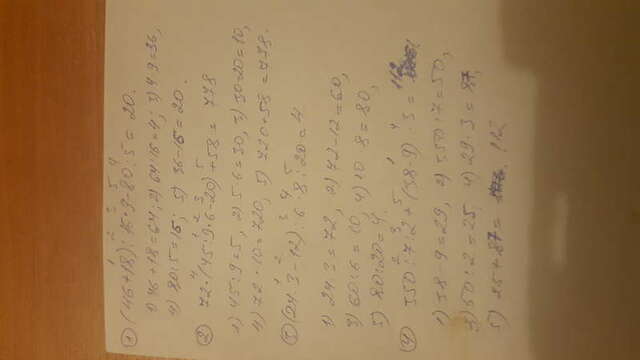 ① (46+18):16·9-80:5=20.
1) 46+18=64; 2) 64:16=4; 3) 4·9=36,
4) 80:5=16; 5) 36-16=20.
② 72·(45:9·6-20)+58=778
1) 45:9=5, 2) 5·6=30, 3) 30-20=10,
4) 72·10=720, 5) 720+58=778.
③ (24·3-12):6·8:20=4.
1) 24·3=72, 2) 72-12=60,
3) 60:6=10, 4) 10·8=80,
5) 80:20=4.
④ 350:7:2+(38-9)·3=112
1) 38-9=29, 2) 350:7=50,
3) 50:2=25, 4) 29·3=87,
5) 25+87=112